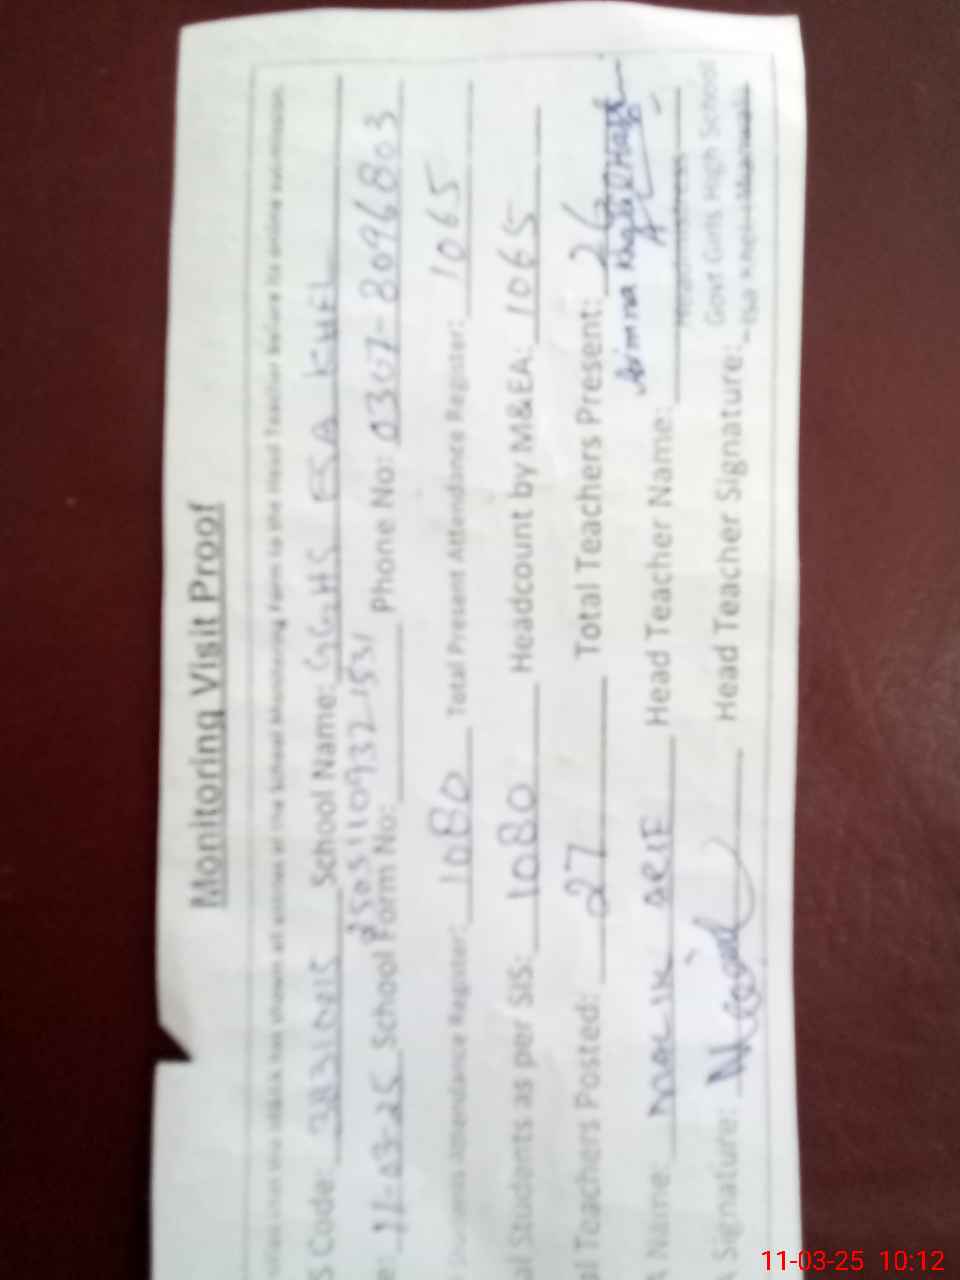 Monitoring Visit Proof
has shown all entries of the School Monitoring Form to the Head Teacher before its online submission.
S Code: School Name: GGHS ESA KHEL
e: 11-03-25 School Form No: 25031109321531 Phone No: 0307-8096803
Students Attendance Register: 1080 Total Present Attendance Register: 1065
al Students as per SIS: 1080 Headcount by M&EA: 1065
l Teachers Posted: 27 Total Teachers Present: 26
A Name: MALIK ARIF Head Teacher Name:
Headmistress
Govt Girls High School
A Signature: Head Teacher Signature:
11-03-25 10:12